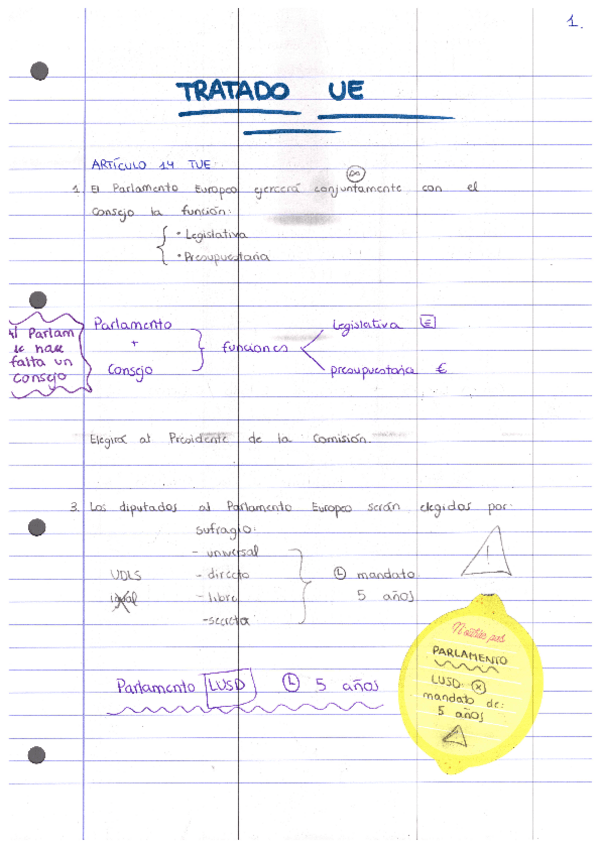 1.
TRATADO UE
ARTÍCULO 14 TUE
1. El Parlamento Europeo ejercerá conjuntamente con el
Consejo la función:
• Legislativa
• Presupuestaria
Al Parlam
le hace
falta un
consejo
Parlamento
+
Consejo
funciones
legislativa
presupuestaria €
Elegirá al Presidente de la Comisión.
3. Los diputados al Parlamento Europeo serán elegidos por
sufragio:
- universal
- directo
- libre
- secreto
UDLS
igual
L mandato
5 años
!
Parlamento LUSD L 5 años
PARLAMENTO
LUSD
mandato de:
5 años